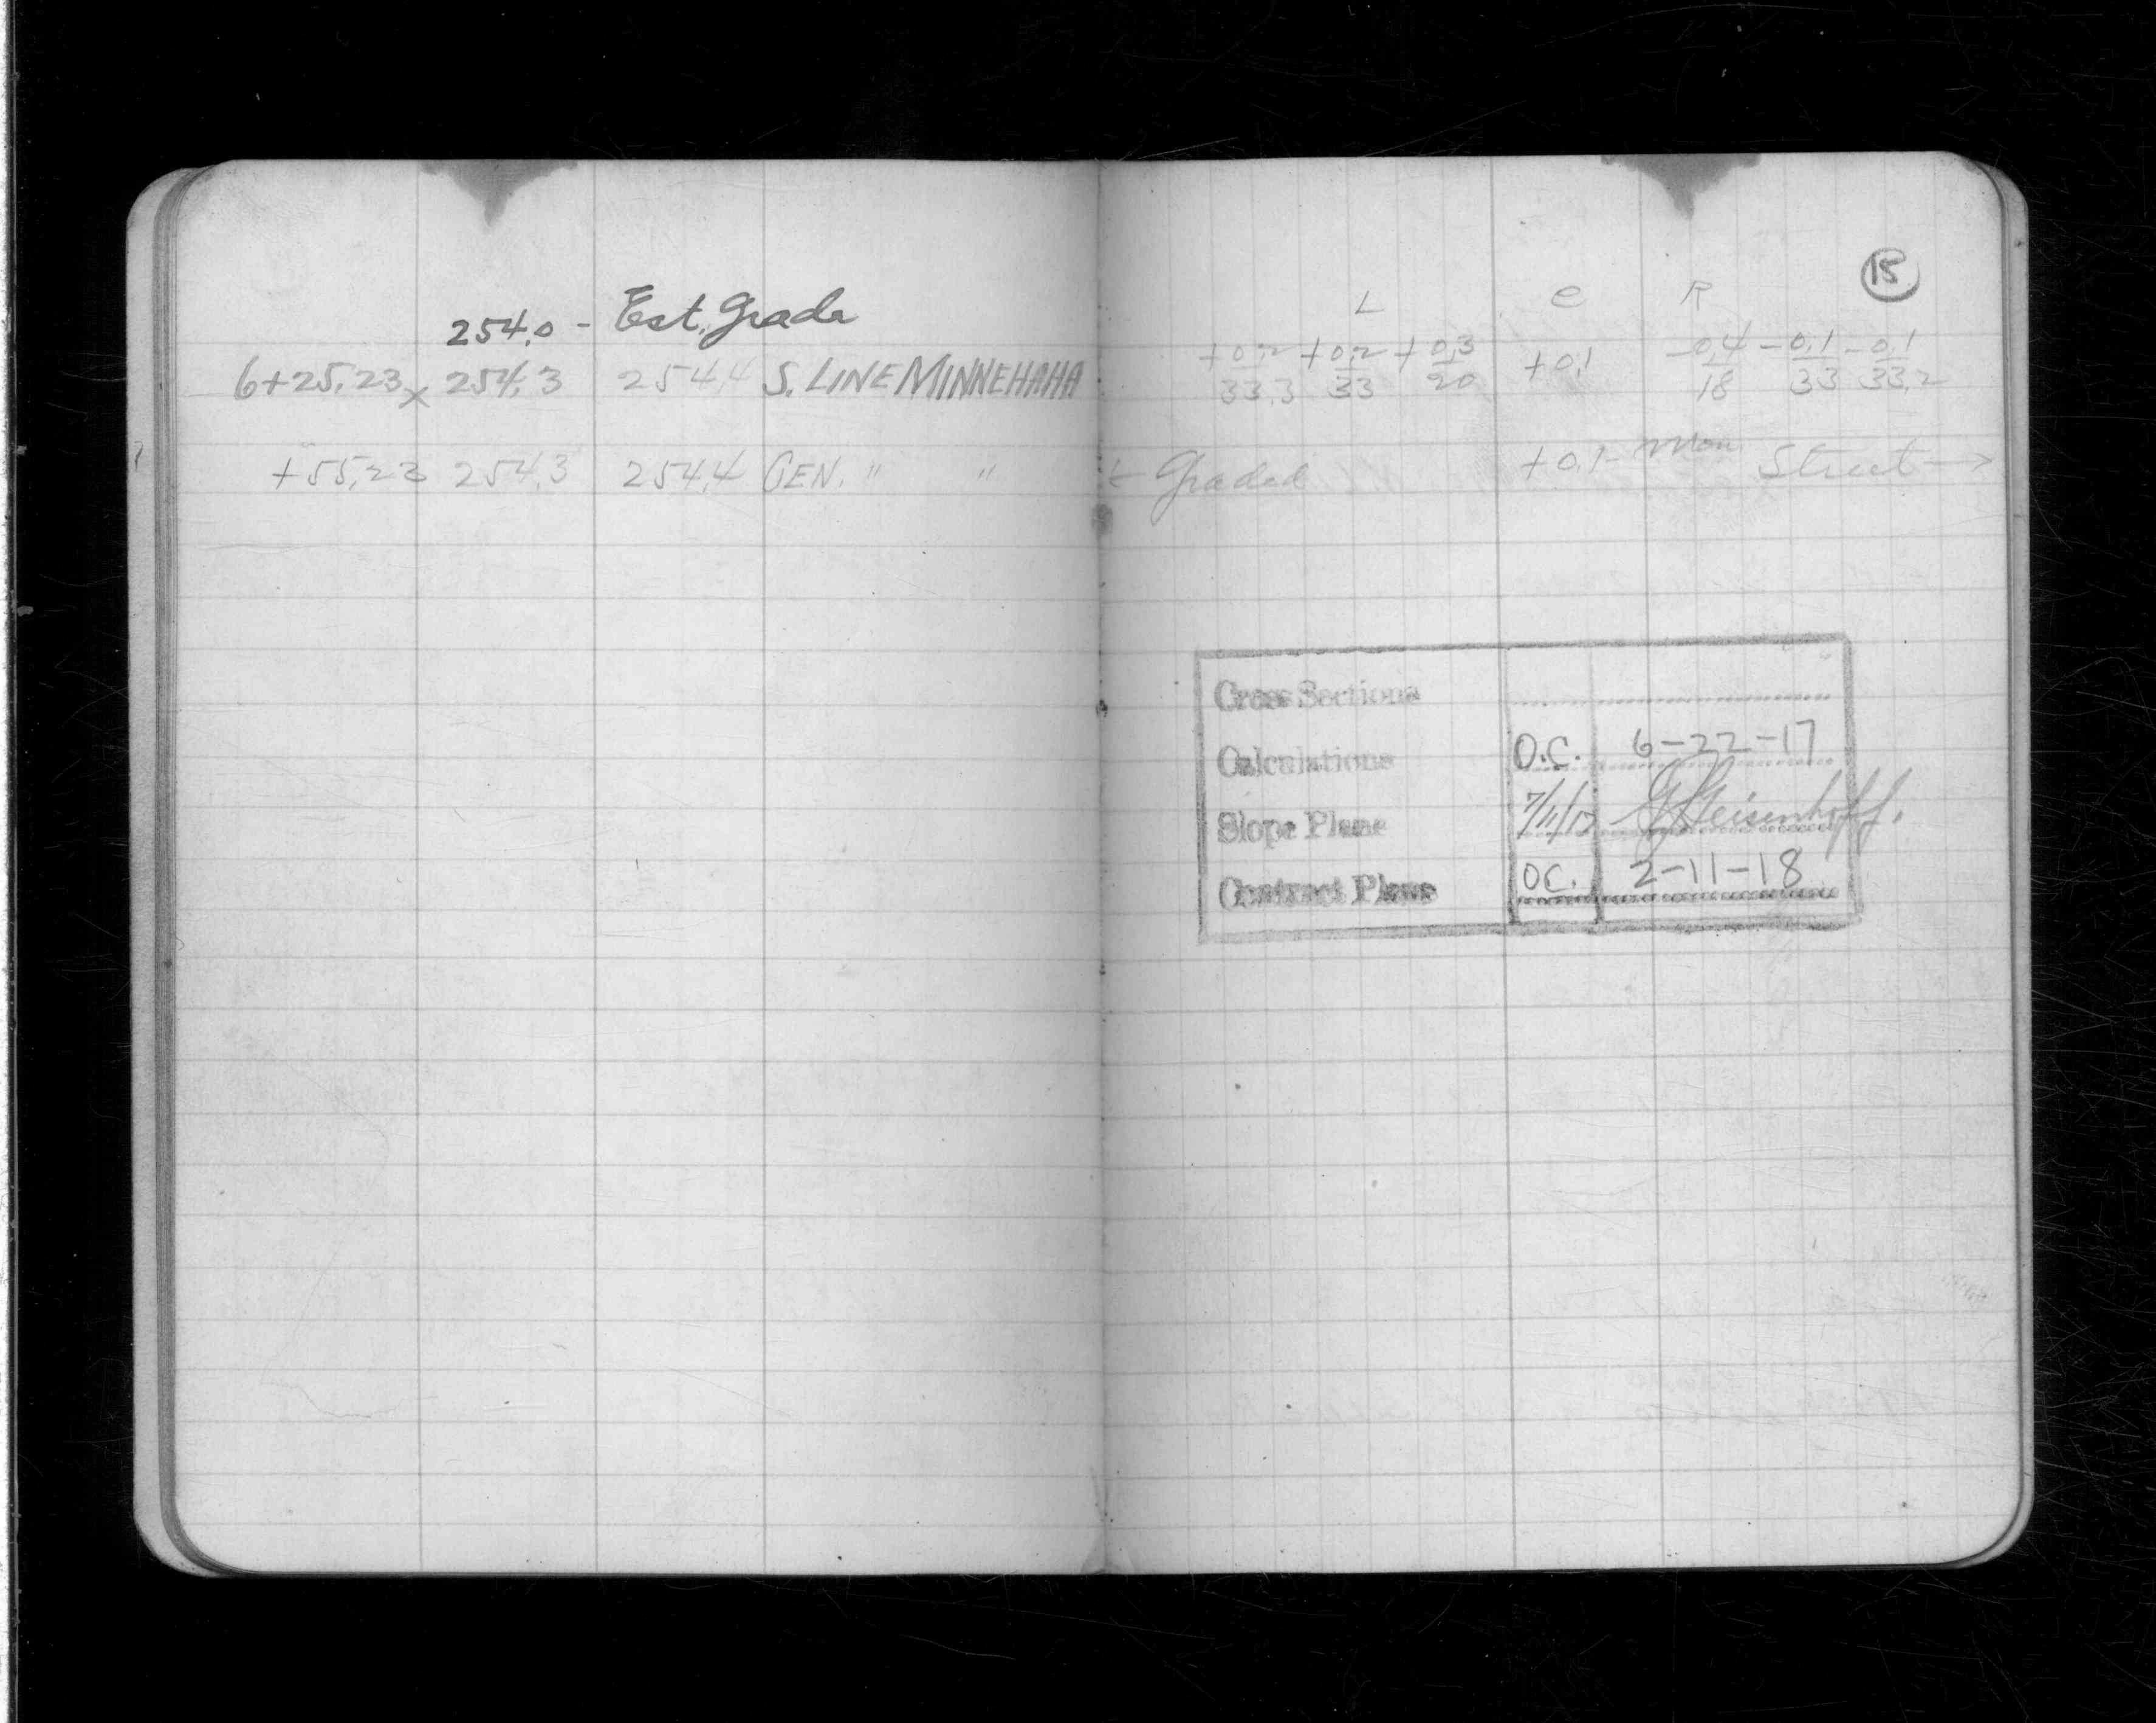 254.0 - Est. Grade
6+25.23 x 254.3 254.4 S. LINE MINNEHAHA
+55.23 254.3 254.4 CEN. " "
15
L C R
+0.2 +0.2 +0.3 +0.1 -0.4 -0.1 -0.1
33.3 33 20 18 33 33.2
← Graded +0.1- Mon. Street →
Cross Sections
Calculations O.C. 6-22-17
Slope Plans 7/11/17
Contract Plans OC. 2-11-18